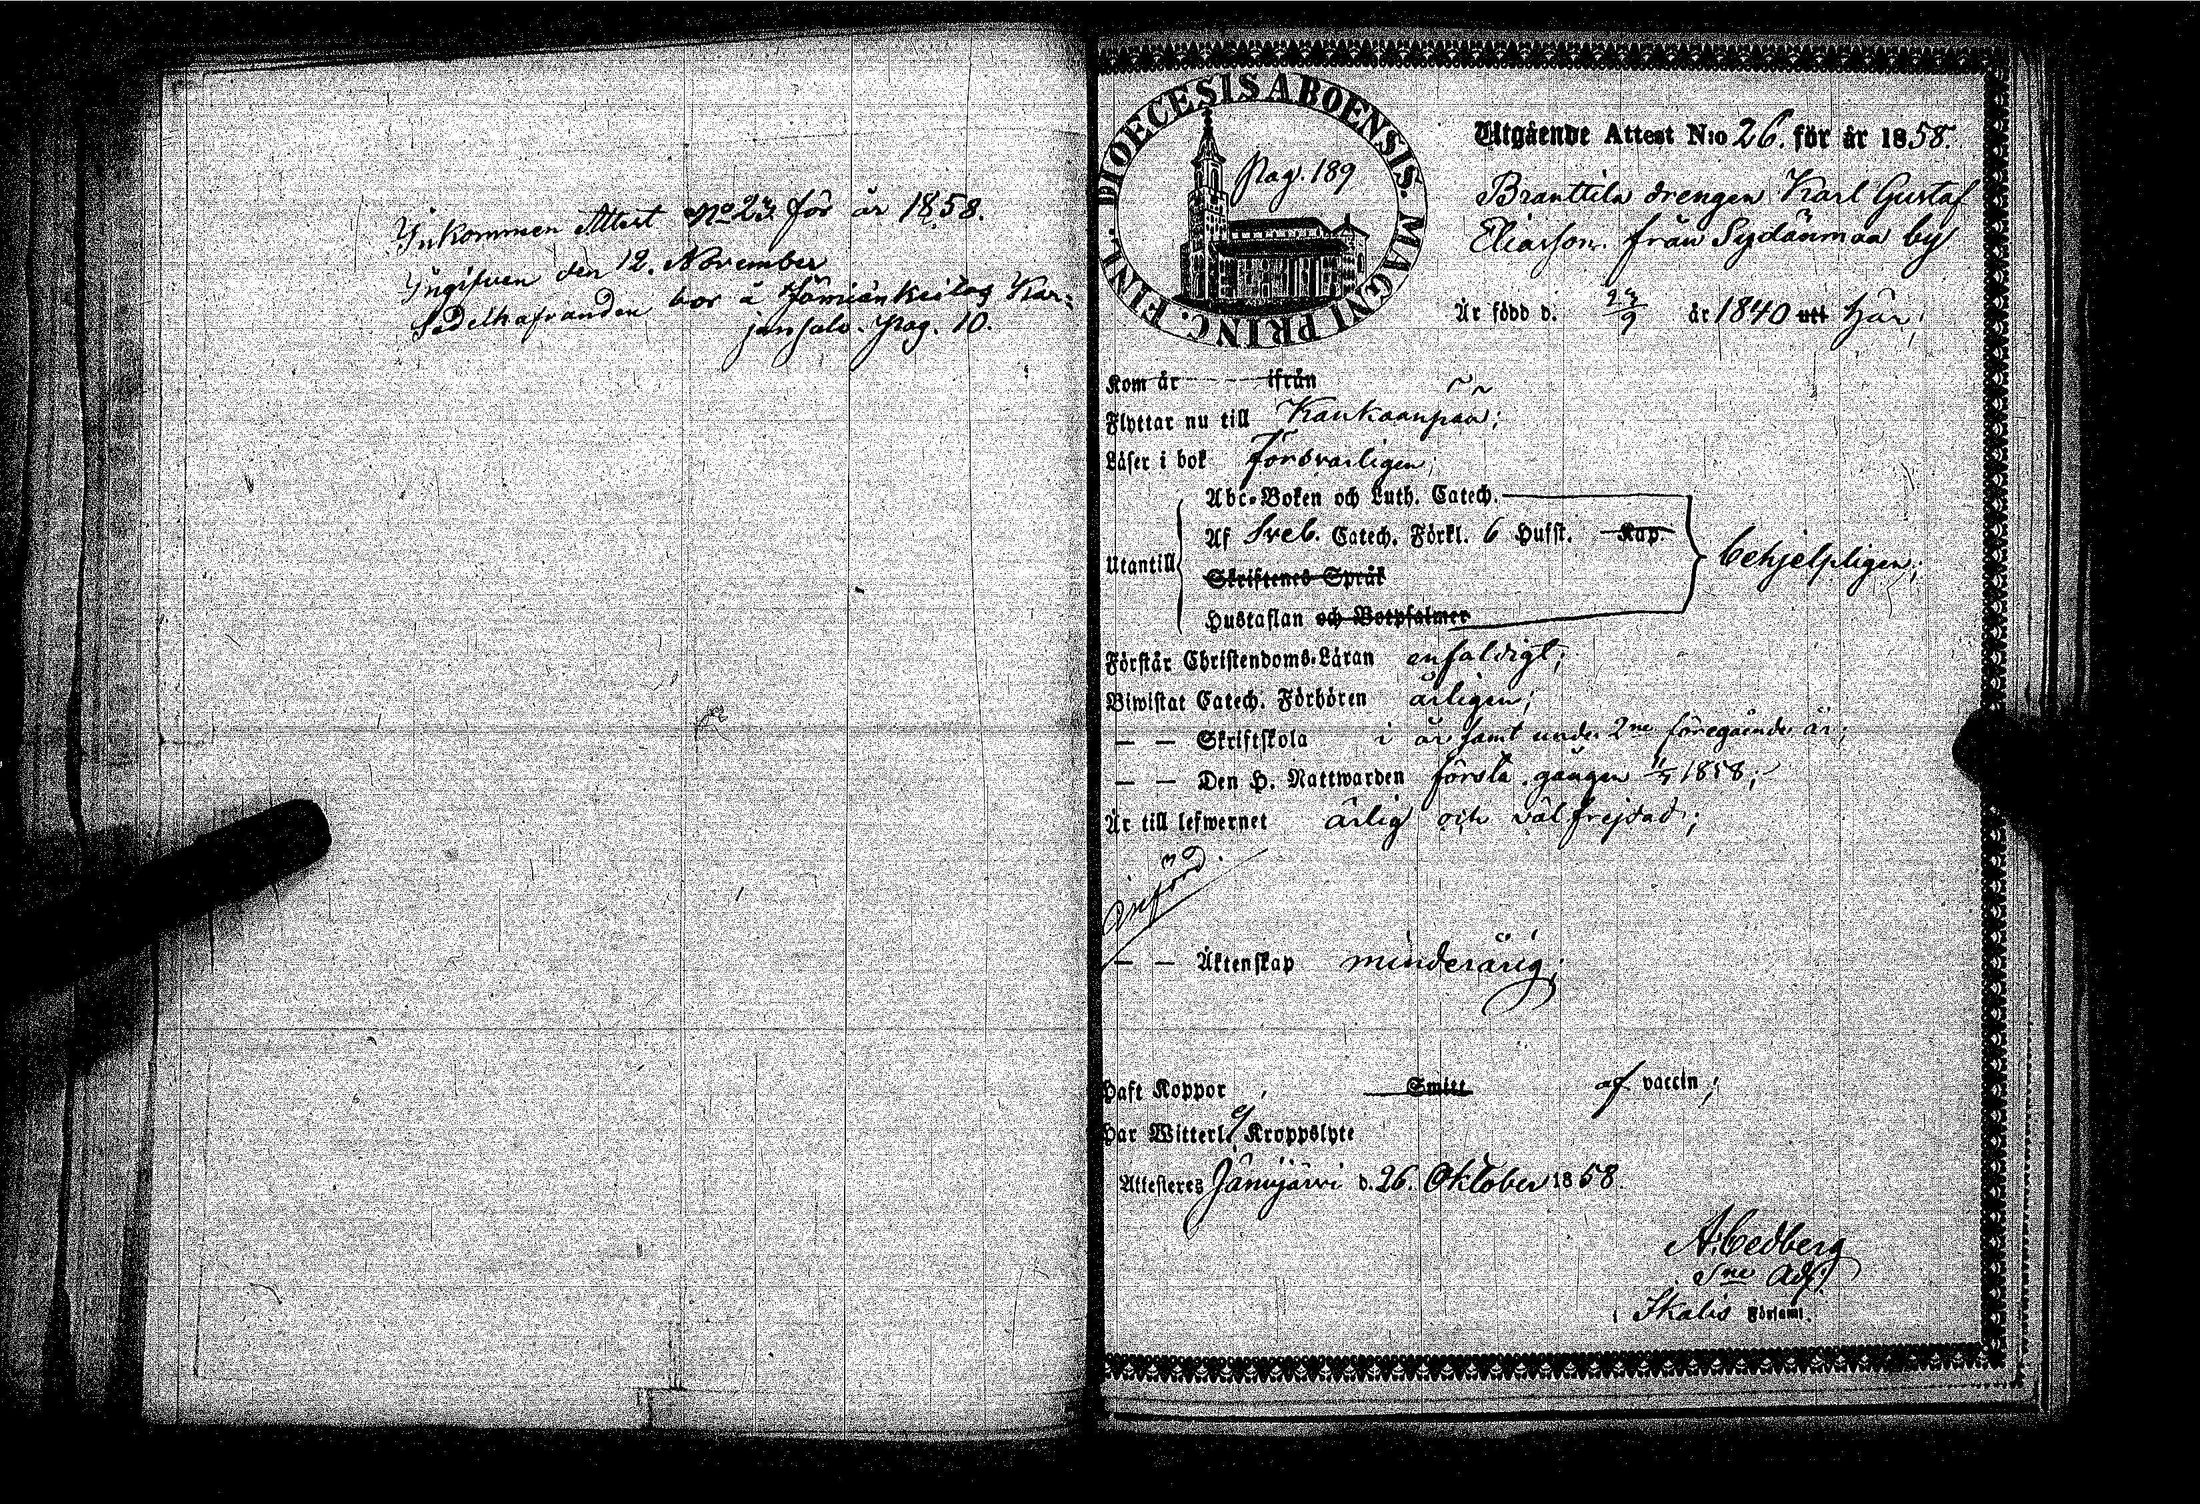 Inkommen Attest No 23 för år 1858.
Ingifven den 12. November
Sedelhafvanden bor å Jämiänkeilas Kar=
janhalv. Pag. 10.
DIOECESIS ABOENSIS. MAGNI PRINC. FINL.
Pag. 189
Utgående Attest N:o 26. för år 1858.
Branttila drengen Karl Gustaf
Eliasson. från Sydänmaa by
Är född d. 23/9 år 1840 uti här;
Kom år ifrån
Flyttar nu till Kankaanpää;
Läser i bok försvarligen;
Abc-Boken och Luth. Catech.
Utantill
Af Sveb. Catech. Förkl. 6 Hufst. Kap.
behjelpligen;
Skriftenes Språk
Hustaflan och Botpsalmer
Förstår Christendoms-Läran enfaldigt;
Biwistat Catech. Förhören årligen;
— — Skriftskola i år samt under 2ne föregående år;
— — Den H. Nattwarden första gången 1858;
Är till lefwernet ärlig och välfrejdad;
Införd.
— — Äktenskap minderårig;
Haft Koppor, Smitt af vaccin;
Har Witterl. Kroppslyte
Attesteres Jämijärvi d. 26. Oktober 1858
A. Cedberg
Sne Adj.
i Ikalis Församl.